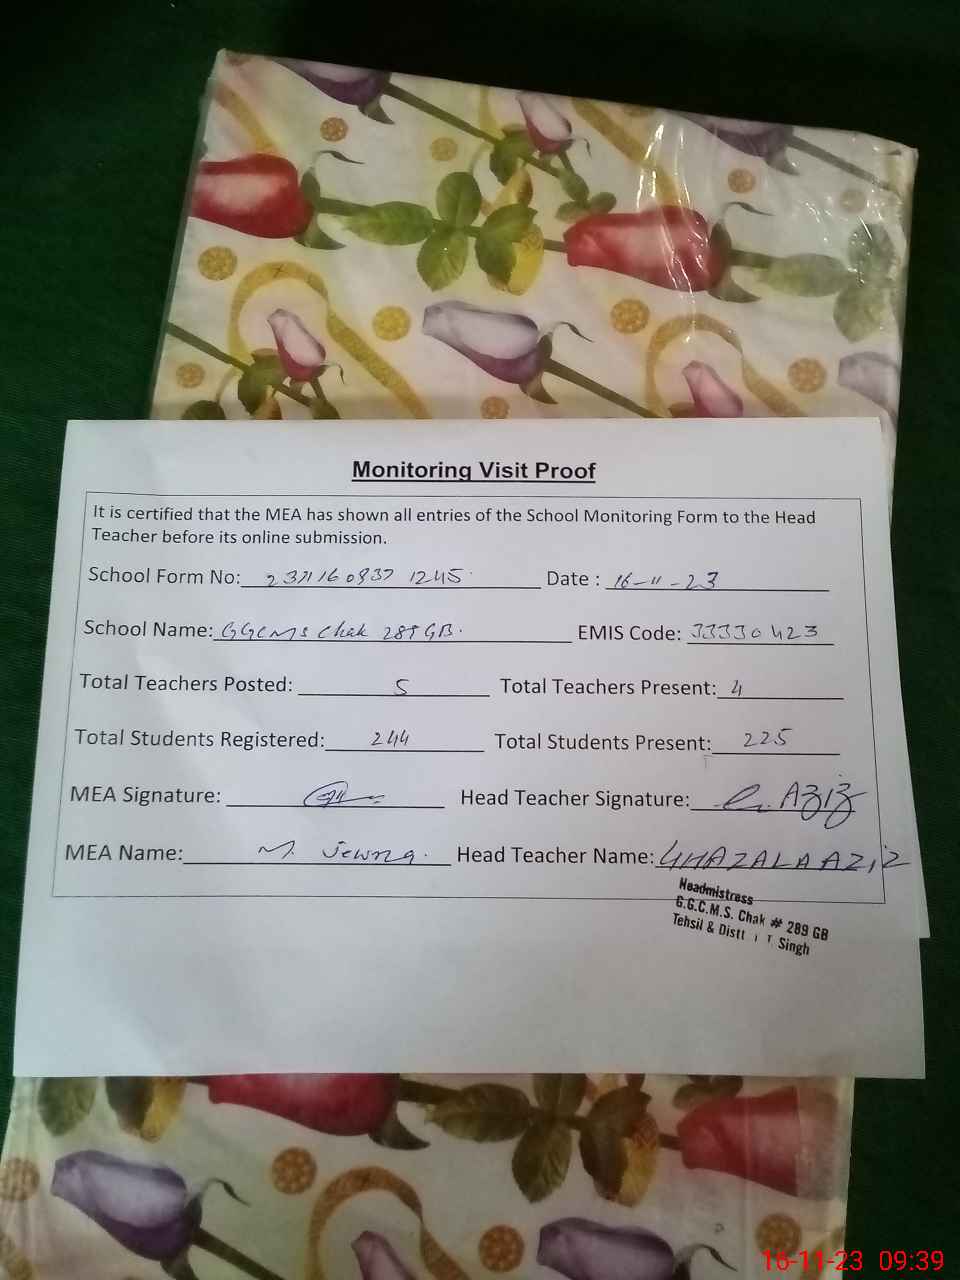 Monitoring Visit Proof
It is certified that the MEA has shown all entries of the School Monitoring Form to the Head
Teacher before its online submission.
School Form No: Date : 16-11-23
School Name: GGCMS Chak 289 GB. EMIS Code: 33330423
Total Teachers Posted: 5 Total Teachers Present: 4
Total Students Registered: 244 Total Students Present: 225
MEA Signature: Head Teacher Signature: AZIZ
MEA Name: M. Head Teacher Name: GHAZALA AZIZ
Headmistress
G.G.C.M.S. Chak # 289 GB
Tehsil & Distt T. T. Singh
16-11-23 09:39